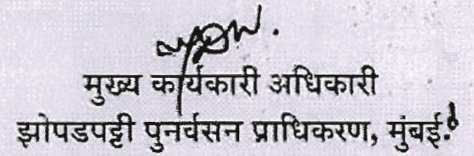 मुख्य कार्यकारी अधिकारी
झोपडपट्टी पुनर्वसन प्राधिकरण, मुंबई.